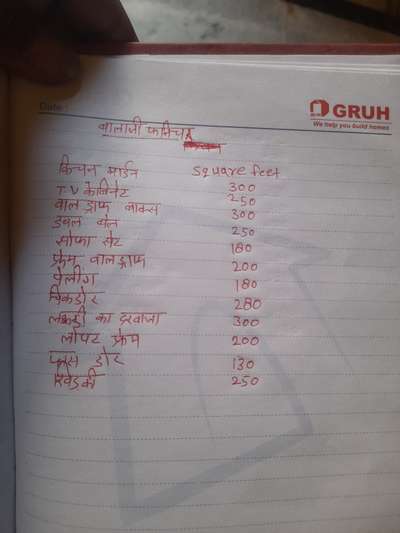 Date :
GRUH
We help you build homes
बालाजी फर्निचर
किचन मार्डन square feet
TV केबिनेट 300
वाल ड्राफ बाक्स 250
डबल बेल 300
सोफा सेट 250
फ्रेम वालड्राफ 180
पेलींग 200
चिकडोर 180
लकडी का दरवाजा 280
लोपट फ्रेम 300
प्लस डोर 200
खिडकी 130
250